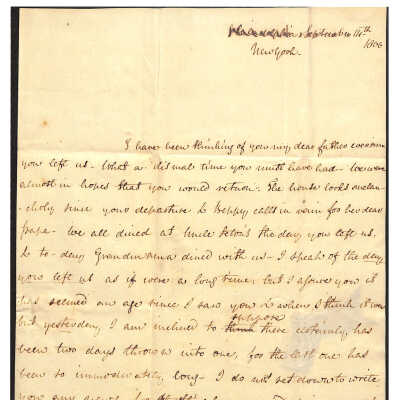 September 14th
New York.
I have been thinking of you my dear father ever since
you left us - What a dismal time you must have had - We were
almost in hopes that you would return. The house looks melan-
-choly since your departure & Peppy calls in vain for her dear
papa - We all dined at Uncle the day you left us,
& to-day Grandmama dined with us - I speak of the day
you left us as if it were a long time, but I assure you it
has seemed an age since I saw you & when I think it was
but yesterday, I am inclined to suppose there certainly has
been two days thrown into one, for the last one has
been so immoderately long - I do not set down to write
you any